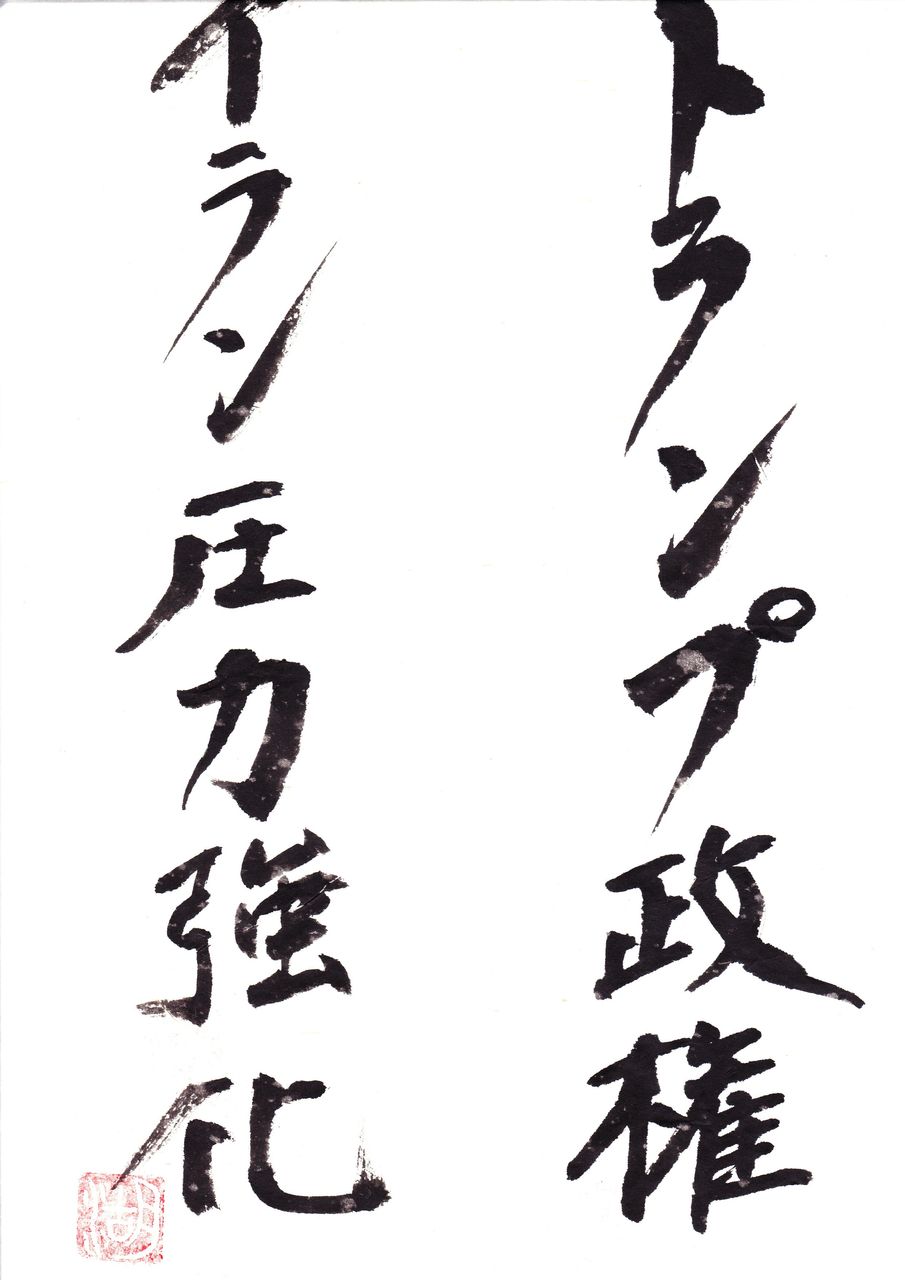 トランプ政権
イラン圧力強化